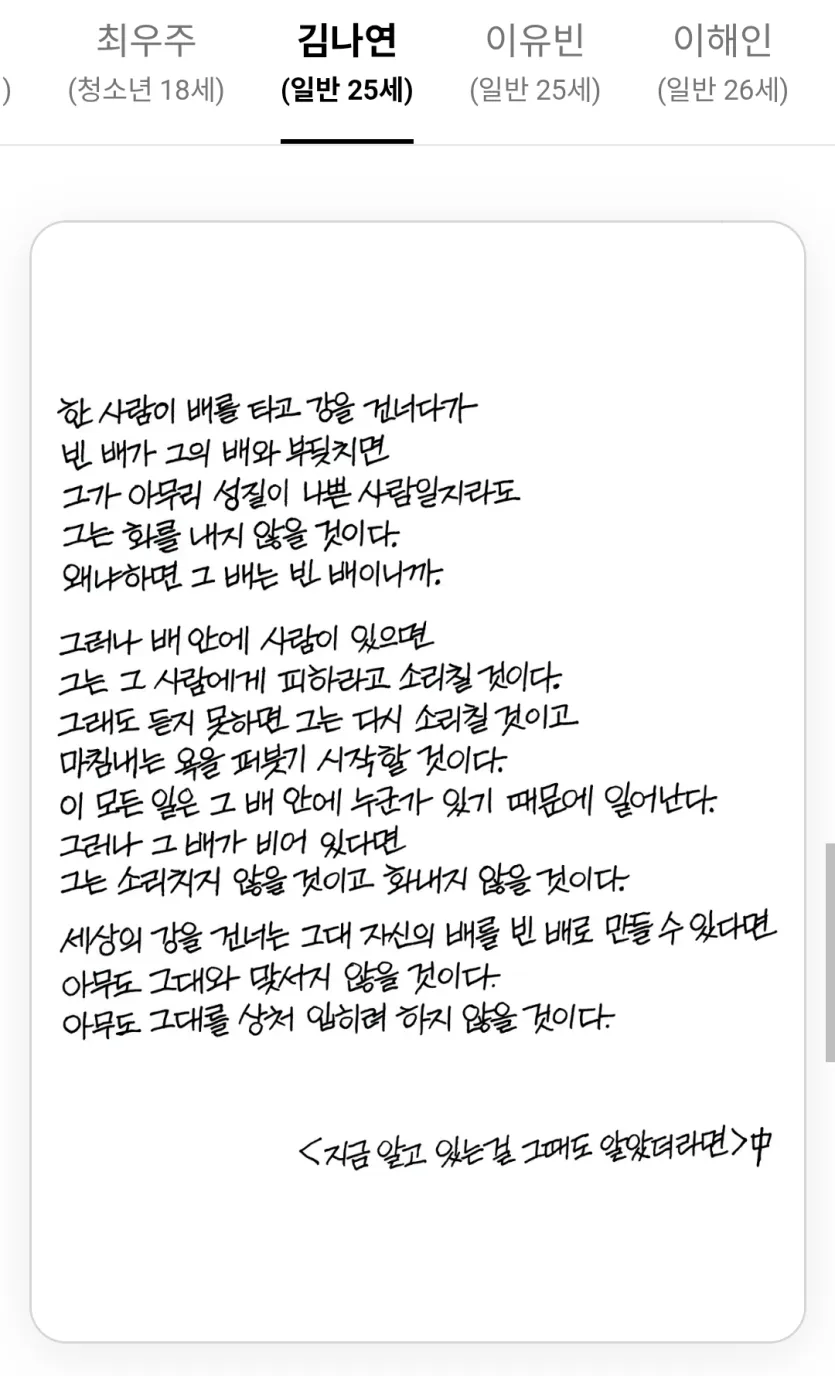 최우주
(청소년 18세)
김나연
(일반 25세)
이유빈
(일반 25세)
이해인
(일반 26세)
)
한 사람이 배를 타고 강을 건너다가
빈 배가 그의 배와 부딪치면
그가 아무리 성질이 나쁜 사람일지라도
그는 화를 내지 않을 것이다.
왜냐하면 그 배는 빈 배이니까.
그러나 배 안에 사람이 있으면
그는 그 사람에게 피하라고 소리칠 것이다.
그래도 듣지 못하면 그는 다시 소리칠 것이고
마침내는 욕을 퍼붓기 시작할 것이다.
이 모든 일은 그 배 안에 누군가 있기 때문에 일어난다.
그러나 그 배가 비어 있다면
그는 소리치지 않을 것이고 화내지 않을 것이다.
세상의 강을 건너는 그대 자신의 배를 빈 배로 만들 수 있다면
아무도 그대와 맞서지 않을 것이다.
아무도 그대를 상처 입히려 하지 않을 것이다.
<지금 알고 있는걸 그때도 알았더라면>中